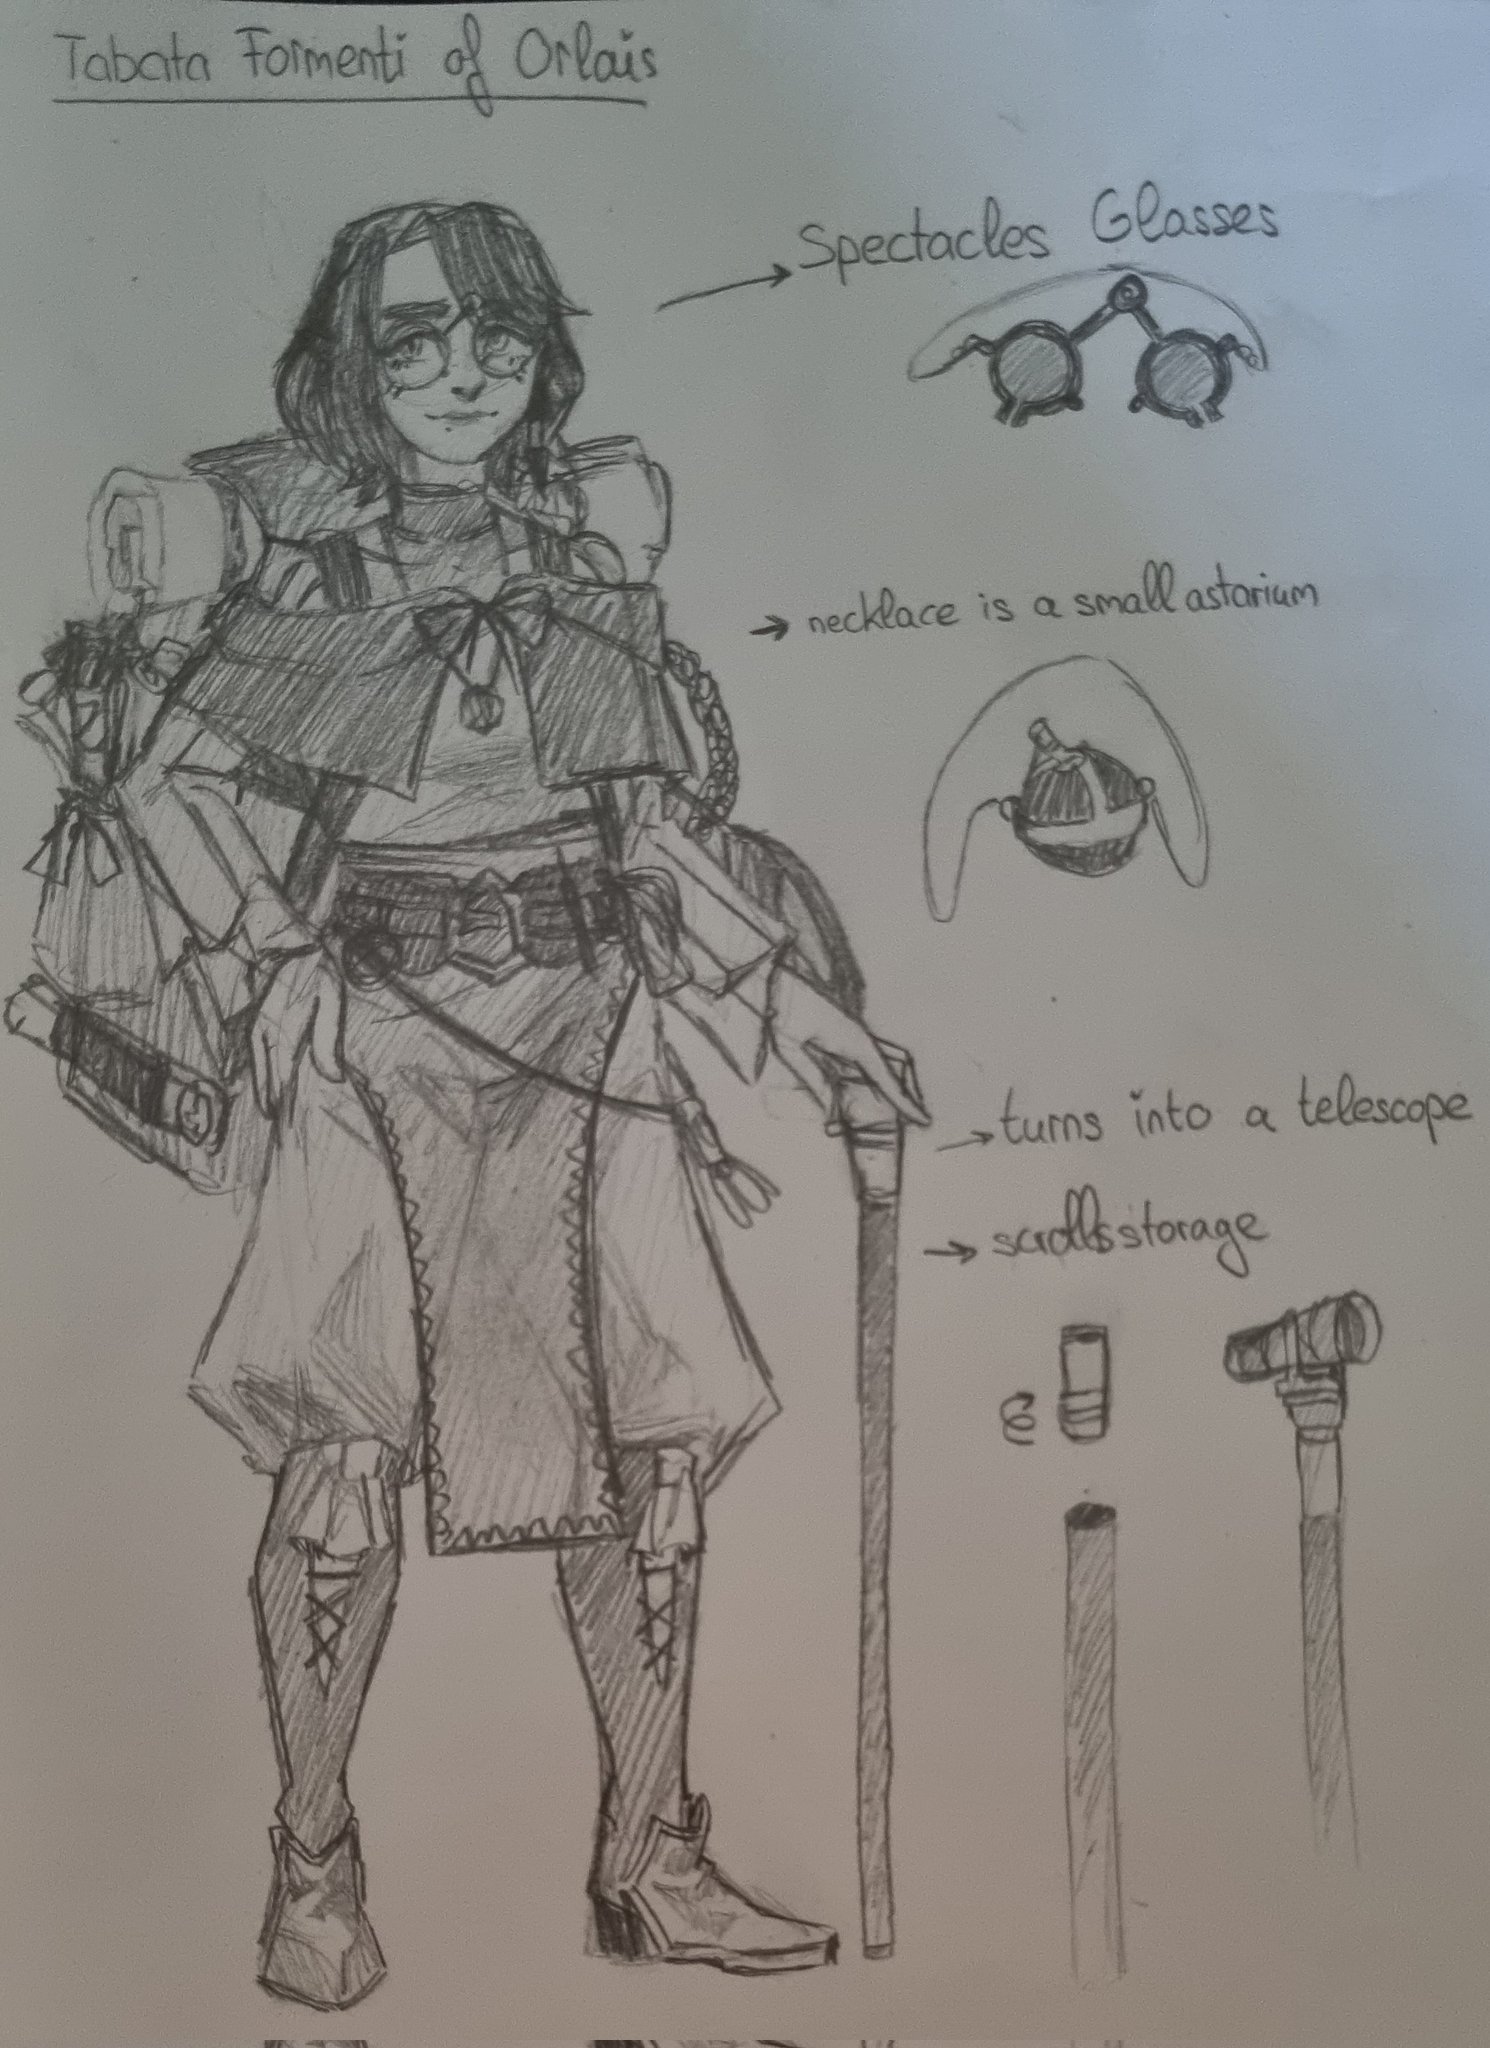 Tabata Formenti of Orlais
→ Spectacles Glasses
→ necklace is a small astarium
→ turns into a telescope
→ scrolls storage